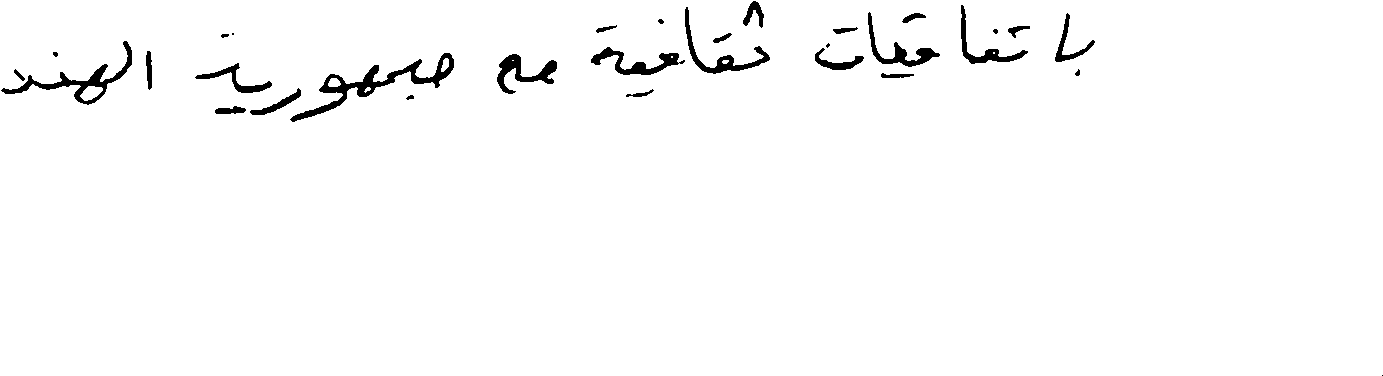 باتفاقيات ثقافية مع جمهورية الهند